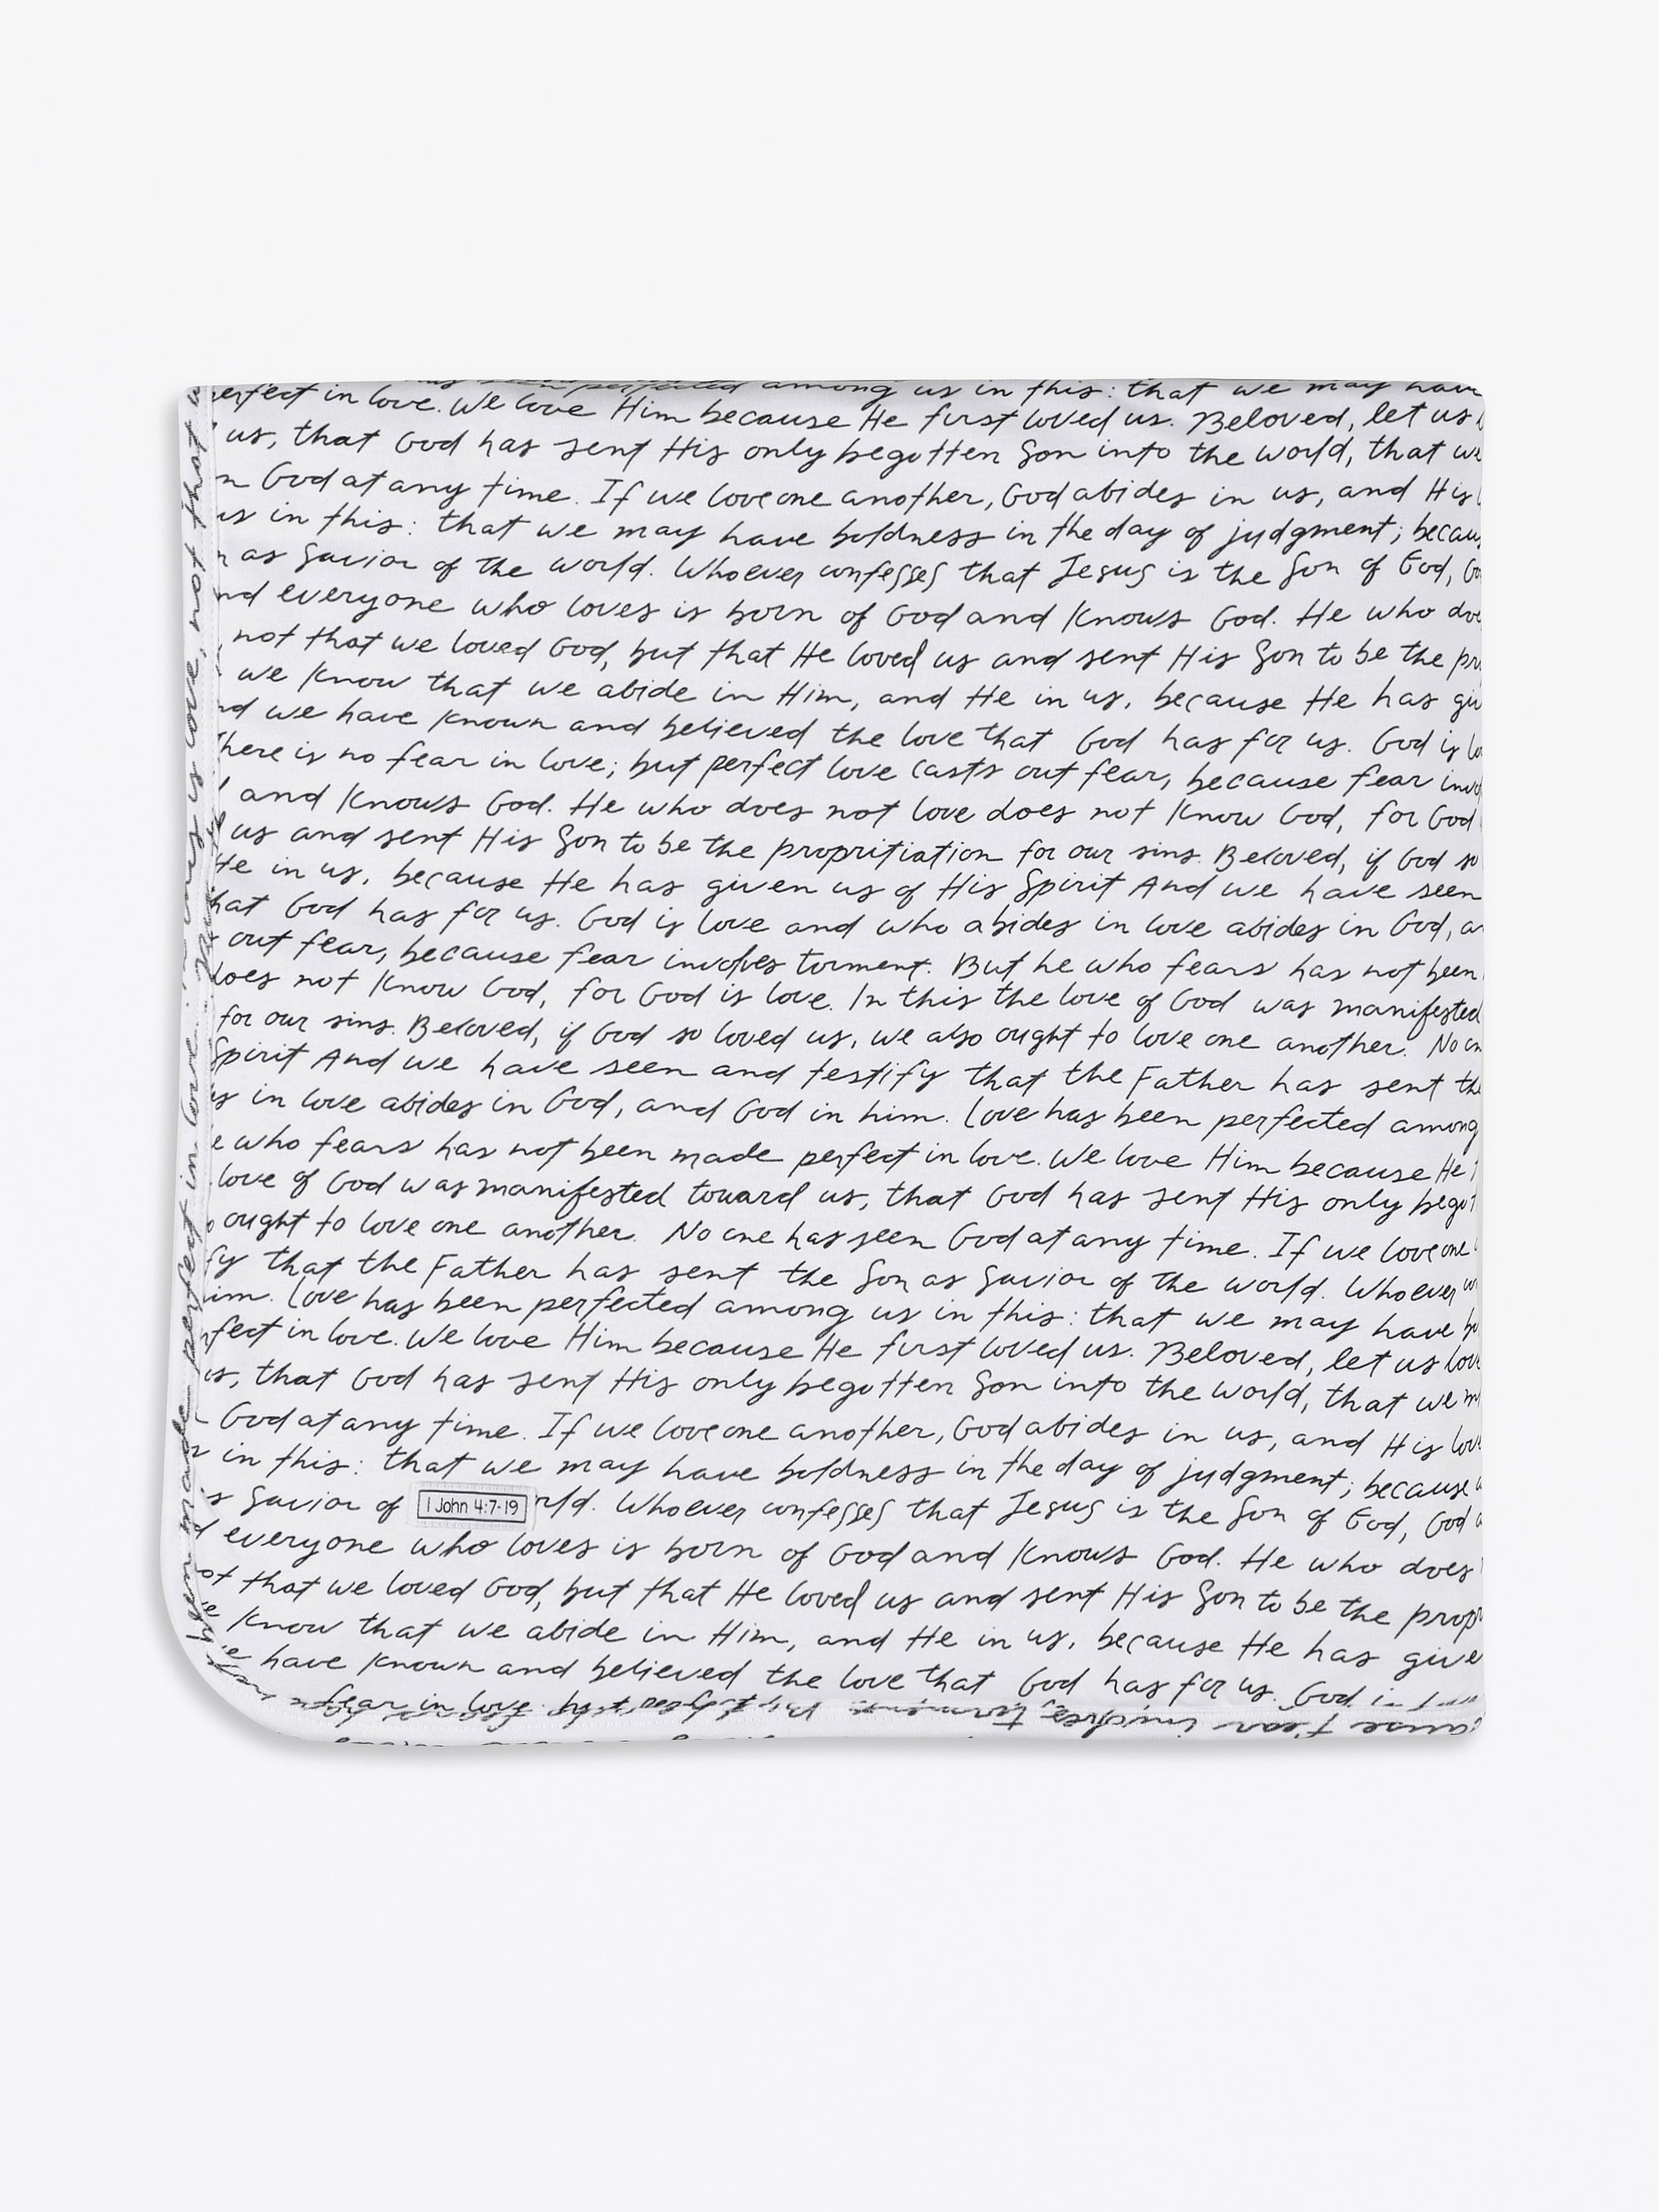 been perfected among us in this: that we may have
perfect in love. We love Him because He first loved us. Beloved, let us
us, that God has sent His only begotten Son into the world, that we
God at any time. If we love one another, God abides in us, and His
us in this: that we may have boldness in the day of judgment; becaus
as Savior of the world. Whoever confesses that Jesus is the Son of God, Go
nd everyone who loves is born of God and knows God. He who doe
not that we loved God, but that He loved us and sent His Son to be the pr
we know that we abide in Him, and He in us, because He has giv
nd we have known and believed the love that God has for us. God is lo
There is no fear in love; but perfect love casts out fear, because fear invo
and knows God. He who does not love does not know God, for God
us and sent His Son to be the propritiation for our sins. Beloved, if God so
He in us, because He has given us of His Spirit And we have seen
that God has for us. God is love and who abides in love abides in God, a
out fear, because fear involves torment. But he who fears has not been
does not know God, for God is love. In this the love of God was manifested
for our sins. Beloved, if God so loved us, we also ought to love one another. No on
Spirit And we have seen and testify that the Father has sent the
in love abides in God, and God in him. Love has been perfected among
e who fears has not been made perfect in love. We love Him because He
love of God was manifested toward us, that God has sent His only begot
ought to love one another. No one has seen God at any time. If we love one
fy that the Father has sent the Son as Savior of the world. Whoever
im. Love has been perfected among us in this: that we may have bo
rfect in love. We love Him because He first loved us. Beloved, let us love
us, that God has sent His only begotten Son into the world, that we m
God at any time. If we love one another, God abides in us, and His love
in this: that we may have boldness in the day of judgment; because
s Savior of rld. Whoever confesses that Jesus is the Son of God, God
1 John 4:7-19
d everyone who loves is born of God and knows God. He who does
ot that we loved God, but that He loved us and sent His Son to be the prop
e know that we abide in Him, and He in us, because He has give
e have known and believed the love that God has for us. God is
fear in love; but perfect